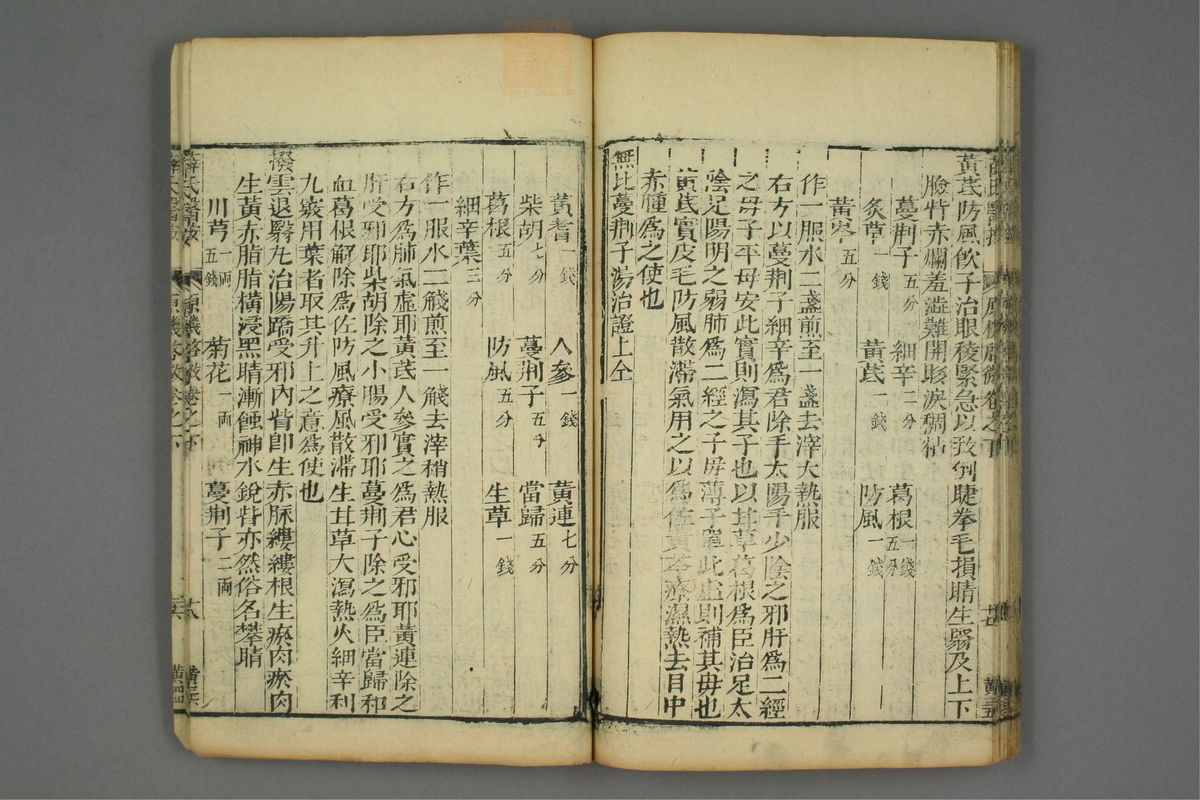 黃芪防風飲子治眼稜緊急以致倒睫拳毛損睛生翳及上下
瞼眥赤爛羞澁難開眵淚稠粘
蔓荆子五分 細辛二分 葛根一錢五分
炙草一錢 黃芪一錢 防風一錢
黃芩五分
作一服水二盞煎至一盞去滓大熱服
右方以蔓荆子細辛爲君除手太陽手少陰之邪肝爲二經
之母子平母安此實則瀉其子也以甘草葛根爲臣治足太
陰足陽明之弱肺爲二經之子母薄子單此虛則補其母也
黃芪實皮毛防風散滯氣用之以爲佐黃芩療濕熱去目中
赤腫爲之使也
無比蔓荆子湯治證上仝
黃耆一錢 人參一錢 黃連七分
柴胡七分 蔓荆子五分 當歸五分
葛根五分 防風五分 生草一錢
細辛葉三分
作一服水二㼽煎至一㼽去滓稍熱服
右方爲肺氣虛耶黃芪人參實之爲君心受邪耶黃連除之
肝受邪耶柴胡除之小腸受邪耶蔓荆子除之爲臣當歸和
血葛根解除爲佐防風療風散滯生甘草大瀉熱火細辛利
九竅用葉者取其升上之意爲使也
撥雲退翳丸治陽蹻受邪內眥卽生赤脉縷縷根生瘀肉瘀肉
生黃赤脂脂橫浸黑睛漸蝕神水銳眥亦然俗名攀睛
川芎一兩五錢 菊花一兩 蔓荆子二兩